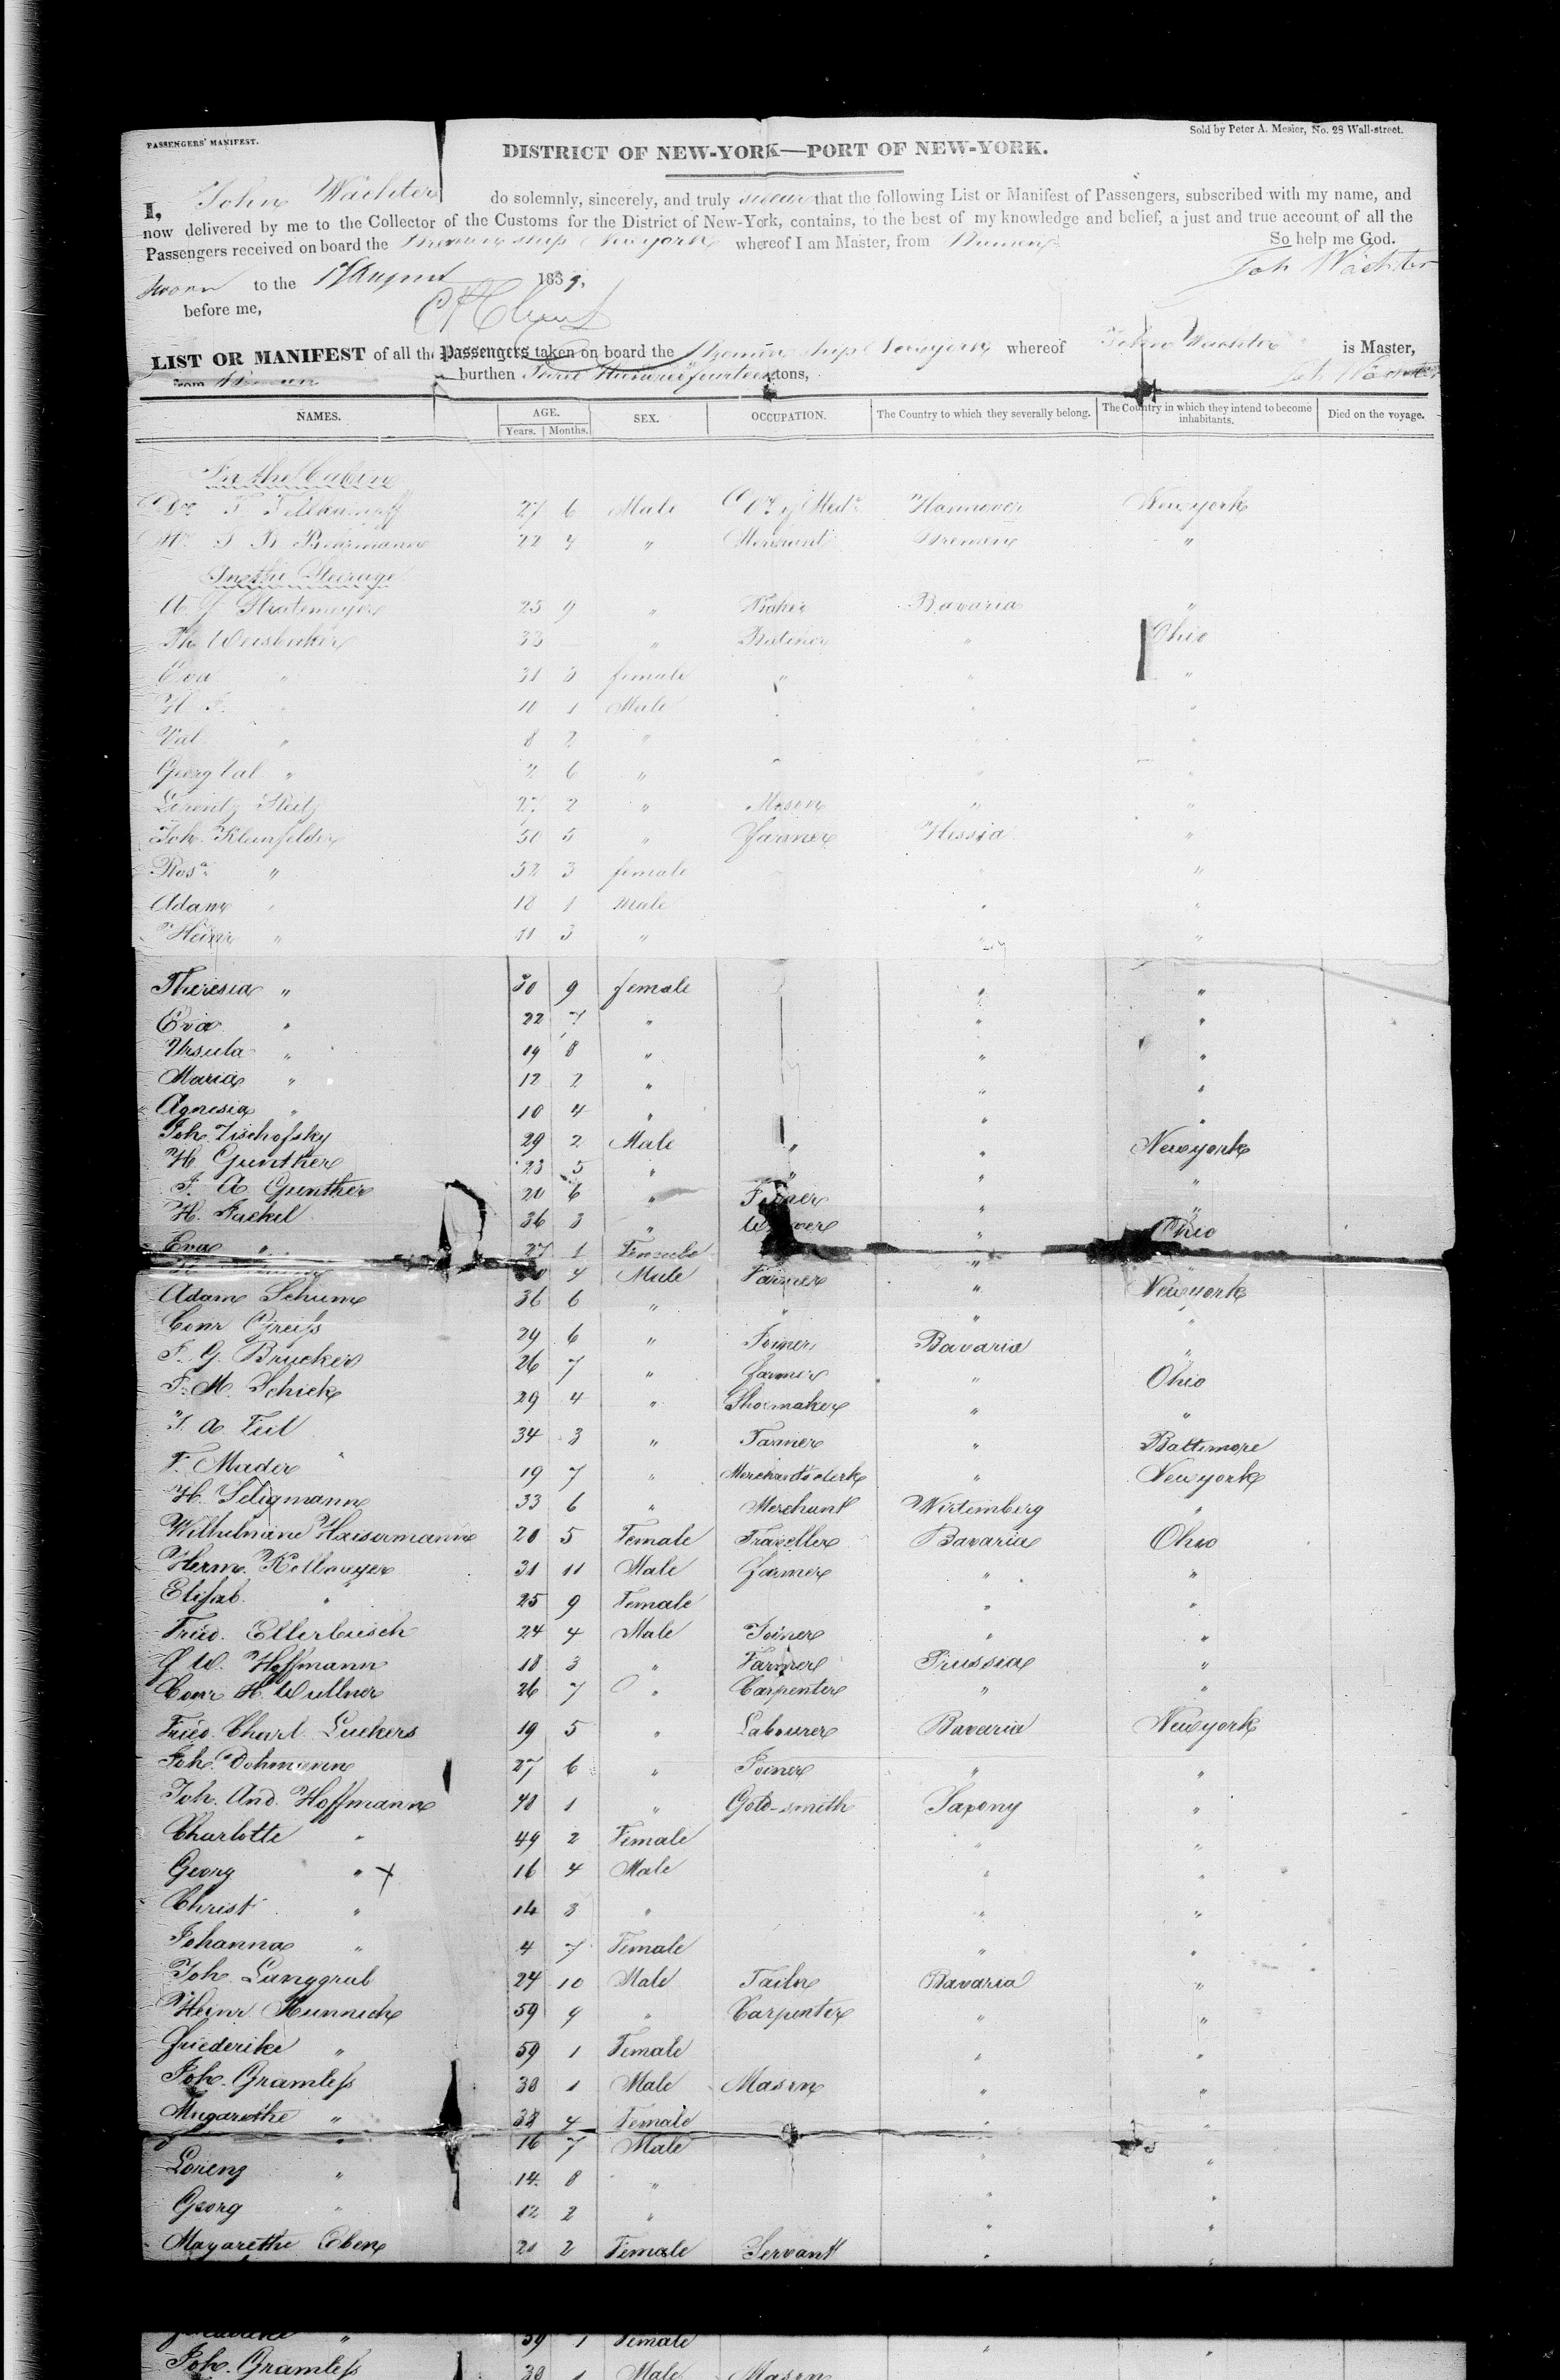 PASSENGERS' MANIFEST.
Sold by Peter A. Mesier, No. 28 Wall-street.
DISTRICT OF NEW-YORK—PORT OF NEW-YORK.
I, John Wächter do solemnly, sincerely, and truly swear that the following List or Manifest of Passengers, subscribed with my name, and
now delivered by me to the Collector of the Customs for the District of New-York, contains, to the best of my knowledge and belief, a just and true account of all the
Passengers received on board the Bremen ship Newyork whereof I am Master, from Bremen
So help me God.
Sworn to the August 1839.
Joh Wächter
before me,
LIST OR MANIFEST of all the Passengers taken on board the Bremen ship Newyork whereof John Wachter is Master,
from Bremen burthen Hundred fourteen tons, Joh Wächter
NAMES. AGE. SEX. OCCUPATION. The Country to which they severally belong. The Country in which they intend to become inhabitants. Died on the voyage.
Years. Months.
In the Cabin
27 6 Male Hannover Newyork
22 4 " Merchant Bremen "
In the Steerage
Stratemeyer 25 9 " Baker Bavaria "
Ph. Weisbecker 33 " Butcher " Ohio
Eva " 31 3 female " " "
10 1 Male
Val " 8 2 "
Georg Val " 2 6 "
Lorentz 27 2 " Mason " "
Joh. Kleinfelder 50 5 " farmer Hessia "
Rosa " 52 3 female "
Adam " 18 1 Male "
Heinr " 11 3 " "
Theresia " 30 9 female " "
Eva " 22 7 " " "
Ursula " 19 8 " " "
Maria " 12 2 " " "
Agnesia " 10 4 " " "
Joh. Zischofsky 29 2 Male " " Newyork
H. Gunther 23 5 " " " "
F. A. Gunther 20 6 " " "
H. Jackel 36 3 " Weaver " Ohio
Eva " 27 1 Female "
4 Male Farmer " Newyork
Adam Schum 36 6 " " " "
Conr Greifs 29 6 " Joiner Bavaria "
F. G. Brucker 26 7 " farmer " Ohio
F. M. Schick 29 4 " Shoemaker " "
A. Feil 34 3 " Farmer " Baltimore
F. Mader 19 7 " Merchants clerk " Newyork
H. Seligmann 33 6 " Merchant Wirtemberg "
Wilhelmine Haisermann 20 5 Female Traveller Bavaria Ohio
Herm. Kollmeyer 31 11 Male farmer " "
Elisab. " 25 9 Female " "
Fried. Ellerbusch 24 4 Male Joiner " "
G W. Hoffmann 18 3 " Farmer Prussia "
Conr H. Wullner 26 7 " Carpenter " "
Fried. Charl. Luckers 19 5 " Labourer Bavaria Newyork
Joh. Dohmann 27 6 " Joiner " "
Joh. And. Hoffmann 48 1 " Gold-smith Saxony "
Charlotte " 49 2 Female " "
Georg " 16 4 Male " "
Christ. " 14 3 " " "
Johanna " 4 7 Female " "
Joh. Langgrab 24 10 Male Tailor Bavaria "
Heinr. Munnich 59 9 " Carpenter " "
Friederike " 59 1 Female " "
Joh. Gramlefs 38 1 Male Mason " "
Magarethe " 38 4 Female " "
" 16 7 Male
Lorenz " 14 8 " " "
Georg " 12 2 " " "
Magarethe Eben 21 2 Female Servant " "
Friederike " 59 1 Female " "
Joh. Gramlefs 38 1 Male Mason